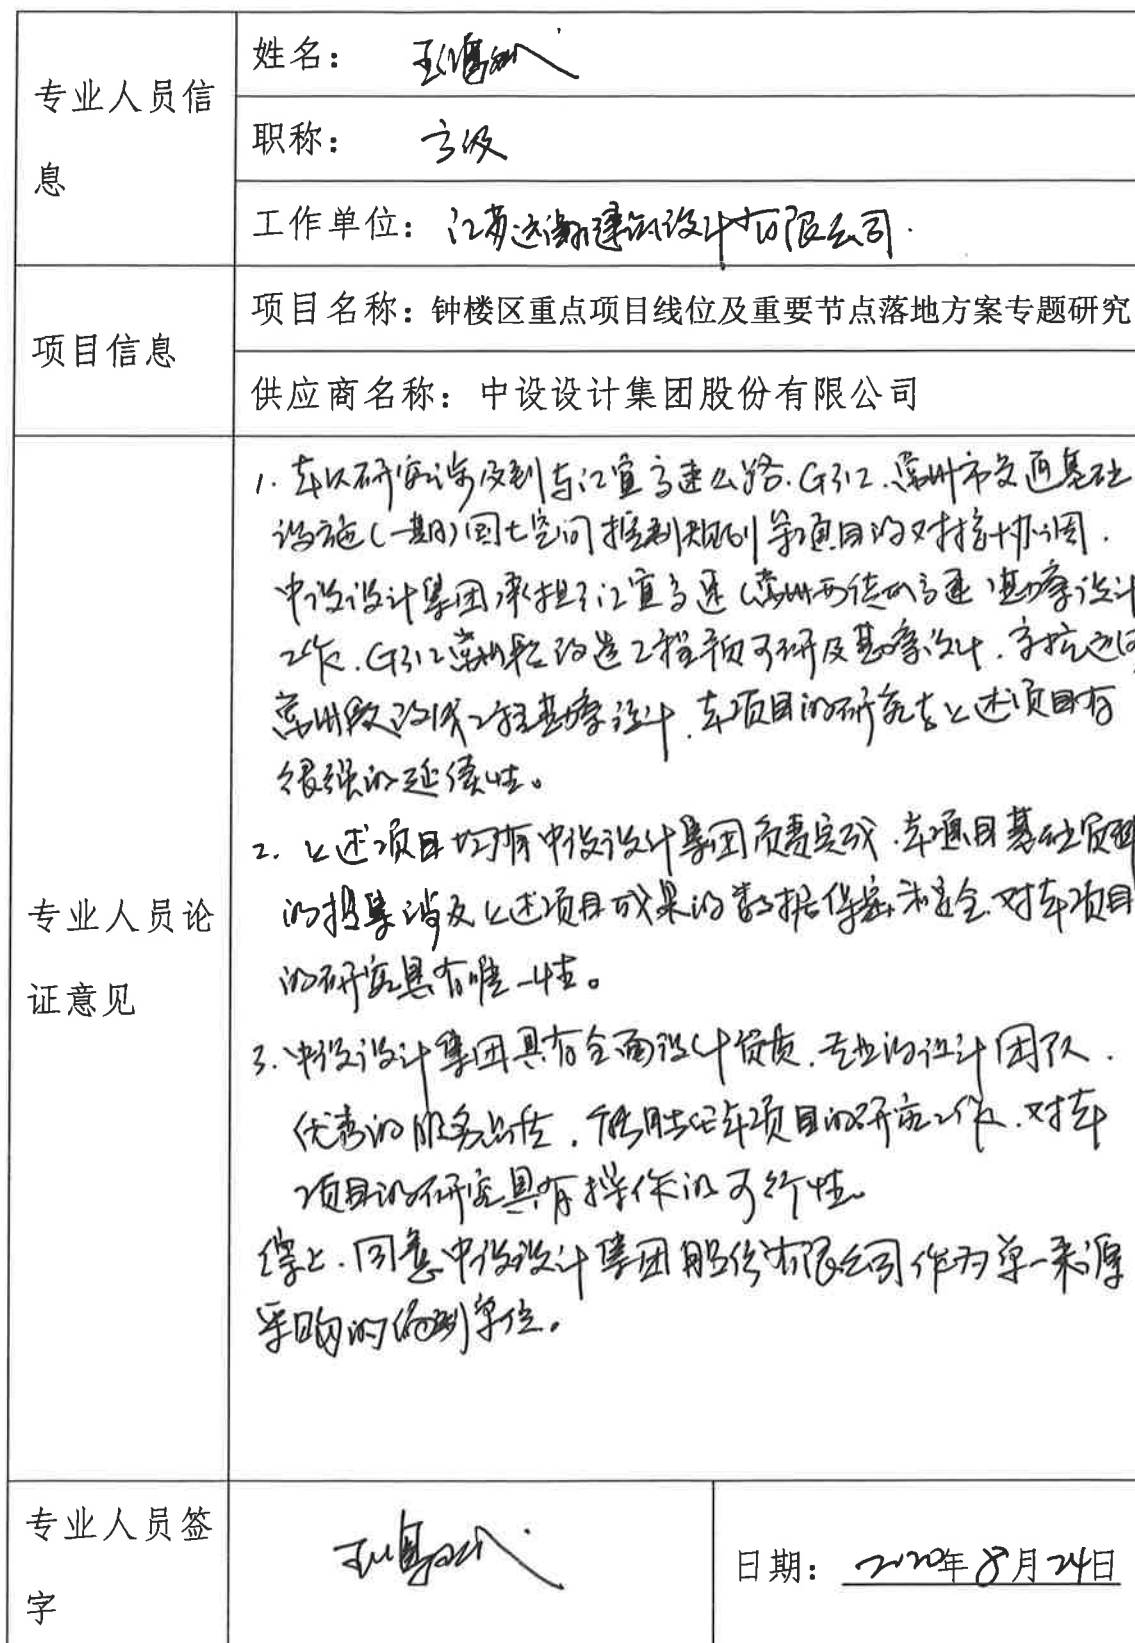 专业人员信息
姓名：
职称： 高级
工作单位： 江苏远瀚建筑设计有限公司.
项目信息
项目名称：钟楼区重点项目线位及重要节点落地方案专题研究
供应商名称：中设设计集团股份有限公司
专业人员论证意见
1. 本次研究涉及到与江宜高速公路、G312、常州市交通基础
设施(一期)国土空间控制规划等项目的对接协调.
中设设计集团承担了江宜高速(常州西绕城高速)勘察设计
工作、G312常州段改造工程预可研及勘察设计、京杭运河
常州段改线工程勘察设计、本项目的研究与上述项目有
很强的延续性。
2. 上述项目均有中设设计集团负责完成、本项目基础资料
的搜集涉及上述项目成果的数据保密和安全、对本项目
的研究具有唯一性。
3. 中设设计集团具有全面设计资质、专业的设计团队、
优秀的服务品质、能胜任本项目的研究工作、对本
项目的研究具有操作的可行性。
综上、同意中设设计集团股份有限公司作为单一来源
采购的编制单位。
专业人员签字
日期： 2020年8月24日